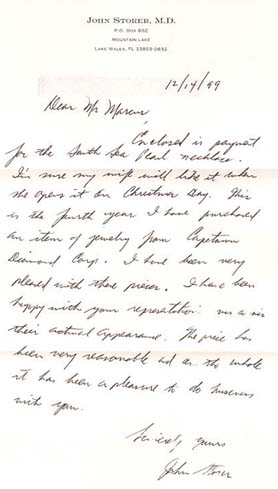 JOHN STORER, M.D.
P.O. BOX 832
MOUNTAIN LAKE
LAKE WALES, FL 33859-0832
12/14/99
Dear Mr Marcus,
Enclosed is payment
for the South Sea Pearl necklace.
I'm sure my wife will like it when
she opens it on Christmas Day. This
is the fourth year I have purchased
an item of jewelry from Capetown
Diamond Corp. I have been very
pleased with these pieces. I have been
happy with your representation vis a vis
their actual appearance. The price has
been very reasonable and on the whole
it has been a pleasure to do business
with you.
Sincerely yours
John Storer